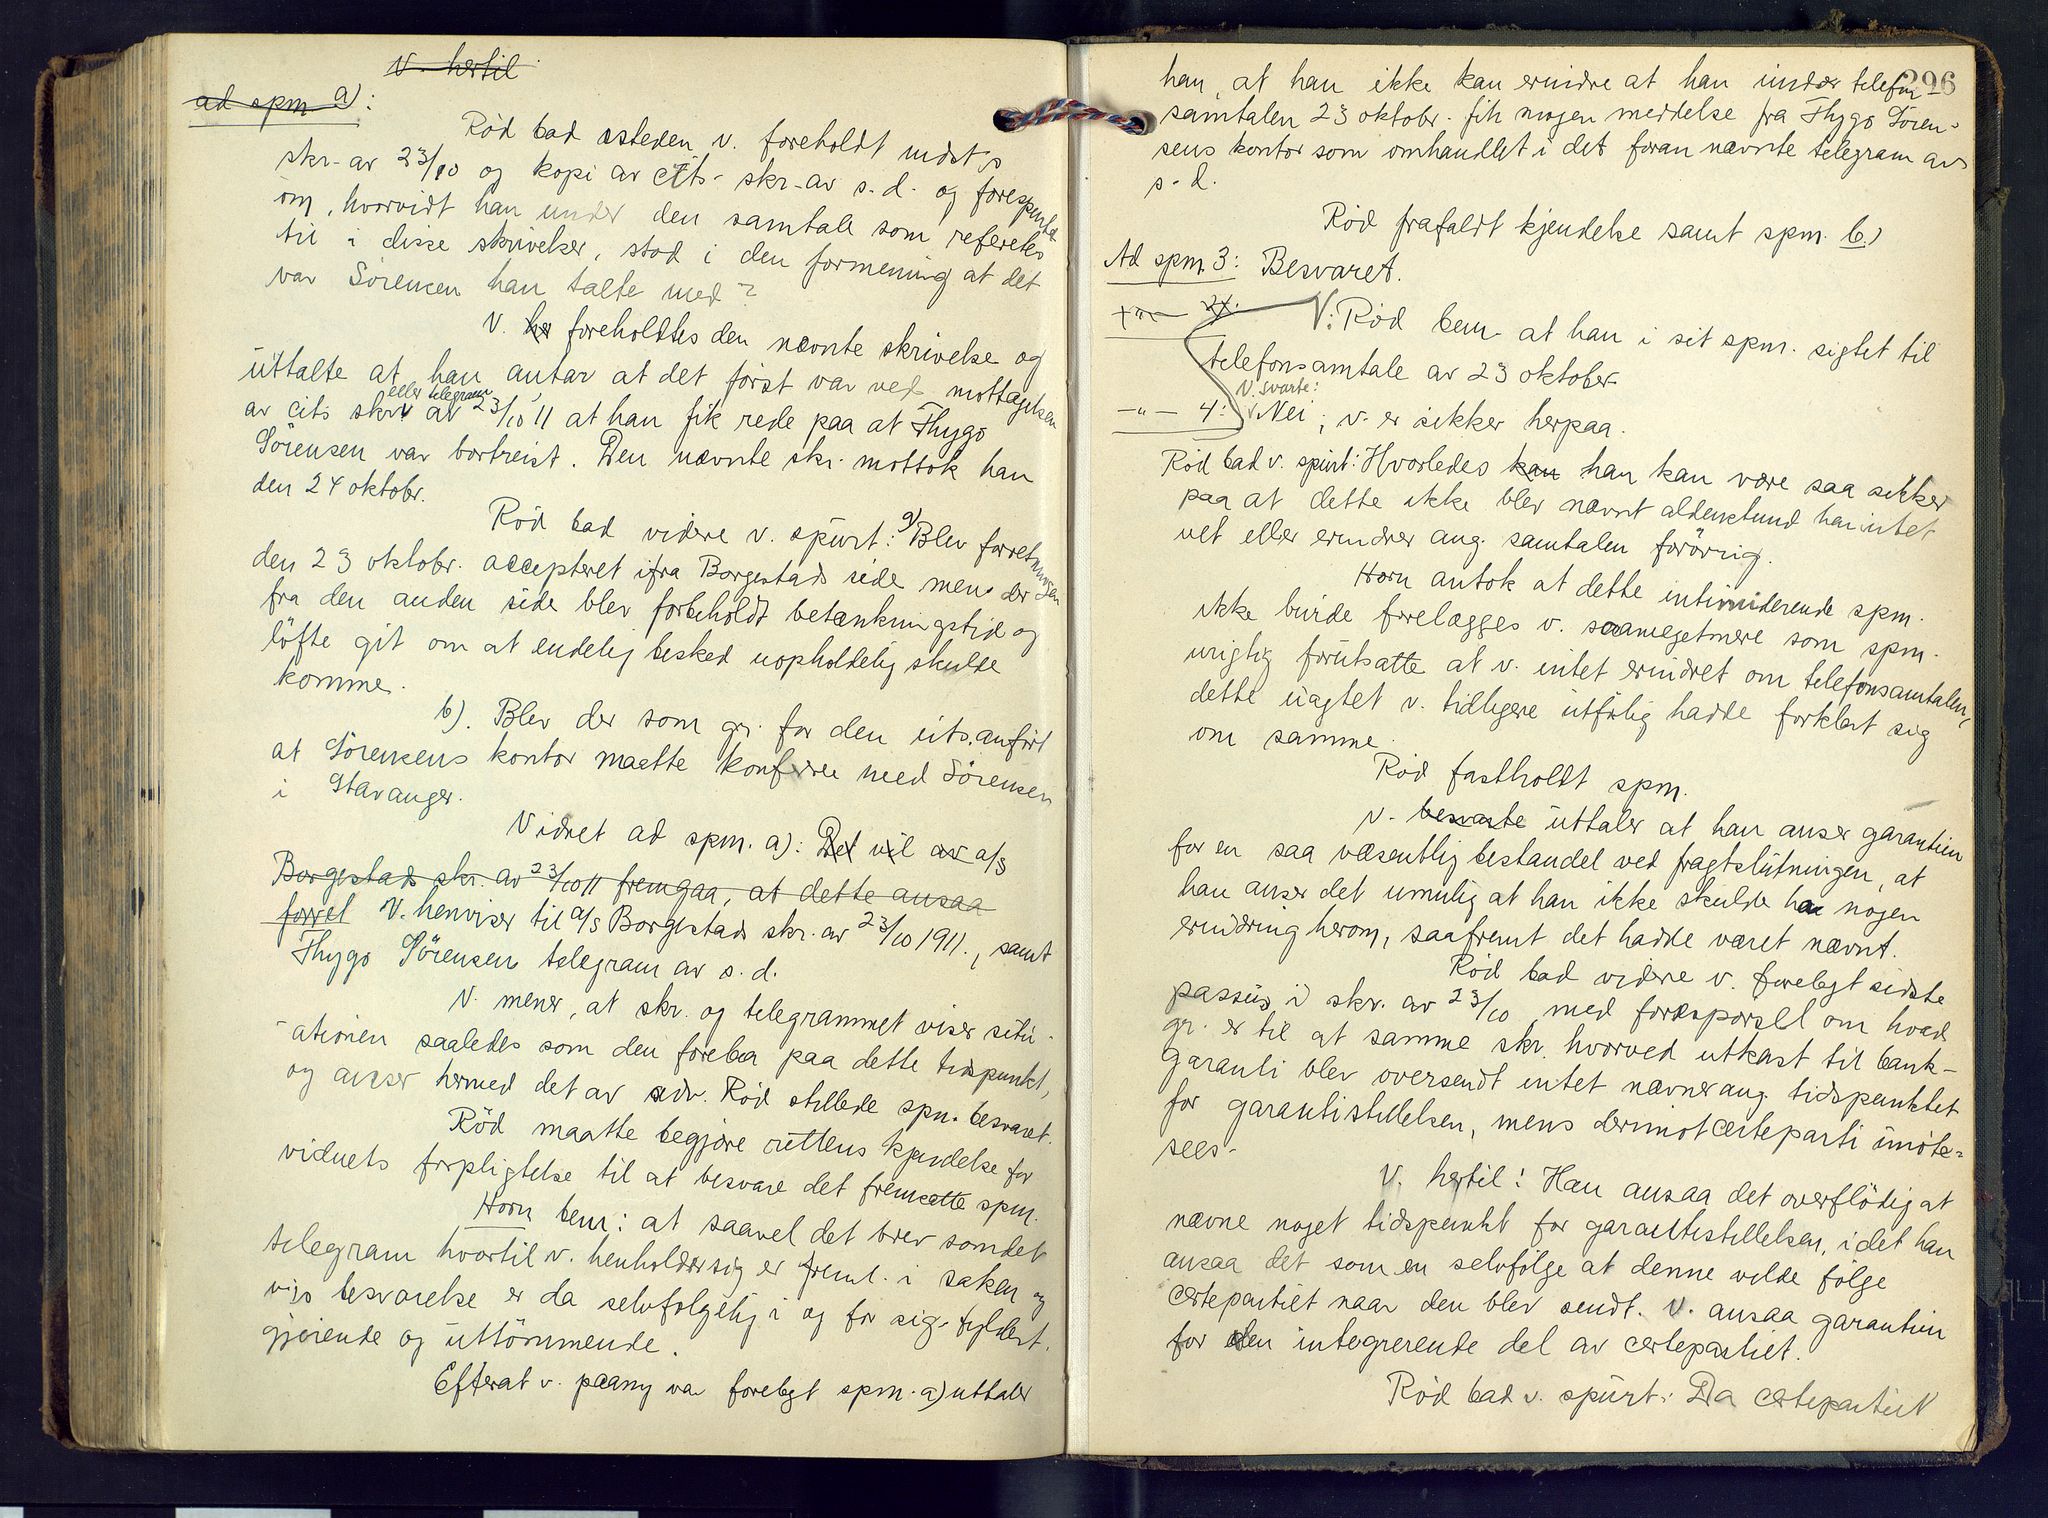 V. hertil
ad spm a):
Rød bad steden v. foreholdt indst.s
skr. av 23/10 og kopi av cits. skr. av s.d. og forespurt
om, hvorvidt han under den samtale som referetes
til i disse skrivelser, stod i den formening at det
var Sörensen han talte med?
V. her foreholdtes den nævnte skrivelse og
uttalte at han antar at det först var ved mottagelsen
eller telegram
av cits skr. av 23/10 11 at han fik rede paa at Thygo
Sörensen var bortreist. Den nævnte skr. mottok han
den 24 oktobr.
Rød bad videre v. spurt: a) Blev forretningen
den 23 oktobr. accepteret ifra Borgestads side mens der
fra den anden side blev forbeholdt betænkningstid og
löfte git om at endelig besked uopholdelig skulde
komme.
b). Blev der som gr. for den uts. anfört
at Sörensens kontor maatte konferere med Sörensen
i Stavanger.
Vidnet ad spm. a): Det vil av a/s
Borgestads skr. av 23/10 11 fremgaa, at dette ansaa
forret V. henviser til a/s Borgestads skr. av 23/10 1911., samt
Thygo Sörensen telegram av s.d.
V. mener, at skr. og telegrammet viser situ-
ationen saaledes som den forelaa paa dette tidspunkt,
og anser hermed det av adv. Rød stillede spm. besvaret.
Rød maatte begjøre rettens kjendelse for
vidnets forpligtelse til at besvare det fremsatte spm.
Horn bem: at saavel det brev som det
telegram hvortil v. henholder sig er freml. i saken og
v's besvarelse er da selvfölgelig i og for sig fyldest-
gjørende og uttömmende.
Efterat v. paany var forelagt spm. a) uttaler
296
han, at han ikke kan erindre at han under telefon-
samtalen 23 oktobr. fik nogen meddelse fra Thygo Sören-
sens kontor som omhandlet i det foran nævnte telegram av
s.d.
Rød frafaldt kjendelse samt spm. b)
Ad spm. 3: Besvaret.
-"- 4: V: Rød bem. at han i sit spm. sigtet til
telefonsamtale av 23 oktober.
V. svarte:
-"- 4: Nei, v. er sikker herpaa.
Rød bad v. spurt: Hvorledes kan han kan være saa sikker
paa at dette ikke blev nævnt aldenstund han intet
vet eller erindrer ang. samtalen forövrig.
Horn antok at dette intimiderende spm.
ikke burde forelægges v. saameget mere som spm.
urigtig forutsatte at v. intet erindret om telefonsamtalen,
dette uagtet v. tidligere utfölig hadde forklart sig
om samme.
Rød fastholdt spm.
V. besvarte uttaler at han anser garantien
for en saa væsentlig bestandel ved fragtslutningen, at
han anser det umulig at han ikke skulde ha nogen
erindring herom, saafremt det hadde været nævnt.
Rød bad videre v. forelagt sidste
passus i skr. av 23/10 med forespørsel om hvad
gr. er til at samme skr. hvorved utkast til bank-
garanti blev oversendt intet nævner ang. tidspunktet
for garantistillelsen, mens derimot certeparti imöte-
sees.
V. hertil: Han ansaa det overflödig at
nævne noget tidspunkt for garantistillelsen, idet han
ansaa det som en selvfölge at denne vilde fölge
certepartiet naar den blev sendt. V. ansaa garantien
for den integrerende del av certepartiet.
Rød bad v. spurt: Da certepartiet